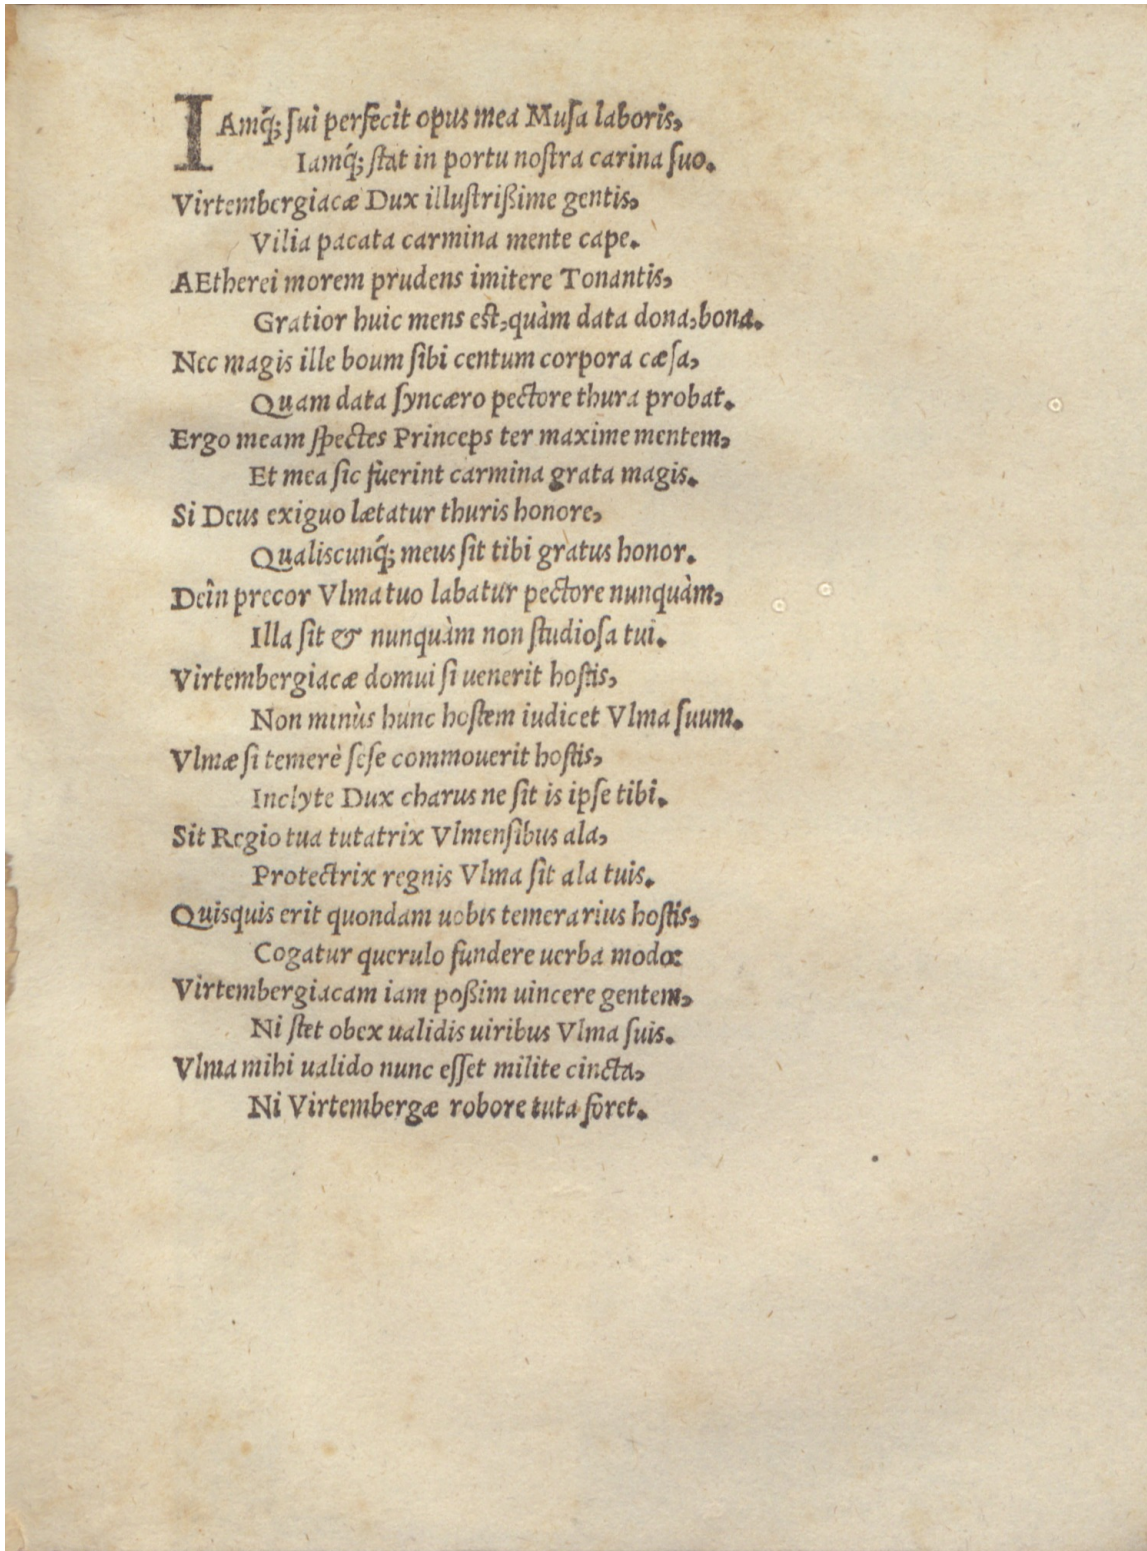 IAmq́; ſui perfecit opus mea Muſa laboris,
Iamq́; ſtat in portu noſtra carina ſuo.
Virtembergiacæ Dux illuſtrißime gentis,
Vilia pacata carmina mente cape.
AEtherei morem prudens imitere Tonantis,
Gratior huic mens est, quàm data dona, bona.
Nec magis ille boum ſibi centum corpora cæſa,
Quam data ſyncæro pectore thura probat.
Ergo meam ſpectes Princeps ter maxime mentem,
Et mea ſic fuerint carmina grata magis.
Si Deus exiguo lætatur thuris honore,
Qualiscunq́; meus ſit tibi gratus honor.
Deîn precor Vlma tuo labatur pectore nunquàm,
Illa ſit & nunquàm non ſtudioſa tui.
Virtembergiacæ domui ſi uenerit hoſtis,
Non minùs hunc hoſtem iudicet Vlma ſuum.
Vlmæ ſi temerè ſeſe commouerit hoſtis,
Inclyte Dux charus ne ſit is ipſe tibi.
Sit Regio tua tutatrix Vlmenſibus ala,
Protectrix regnis Vlma ſit ala tuis.
Quisquis erit quondam uobis temerarius hoſtis,
Cogatur querulo fundere uerba modo:
Virtembergiacam iam poßim uincere gentem,
Ni ſtet obex ualidis uiribus Vlma ſuis.
Vlma mihi ualido nunc eſſet milite cincta,
Ni Virtembergæ robore tuta foret.